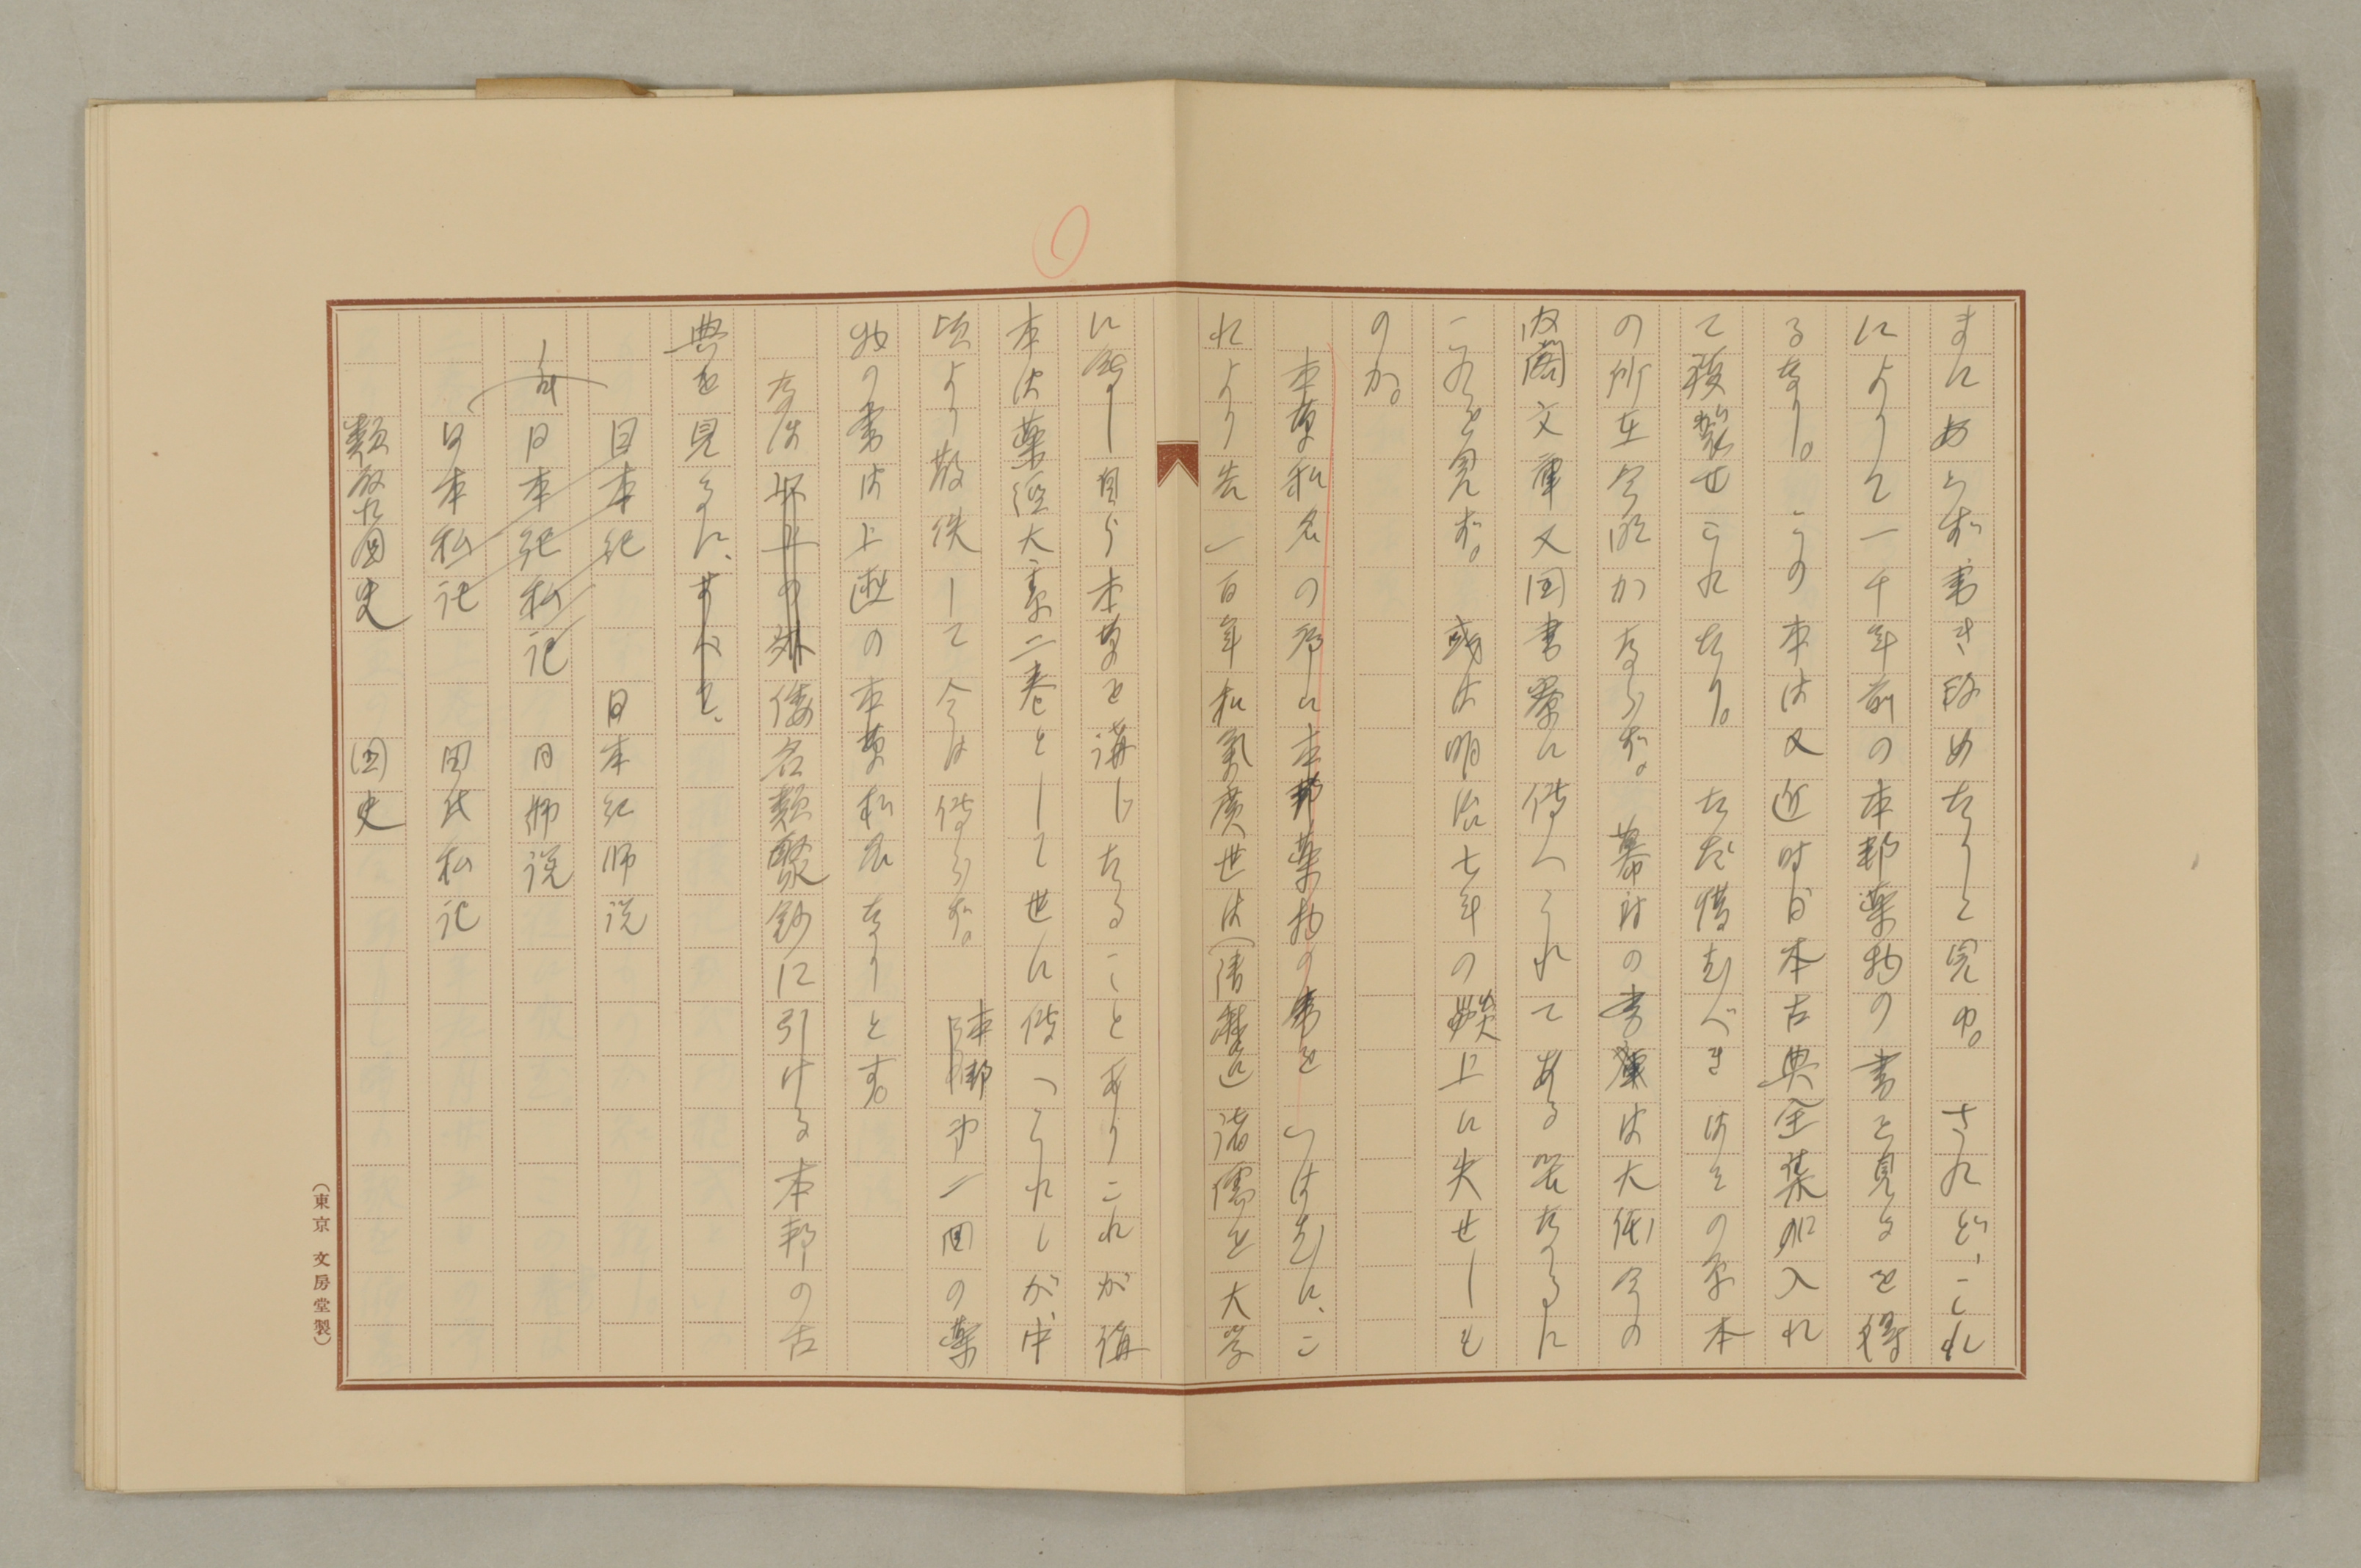 まにあらず、書き改めたりと覚ゆ。 されど、これ
によりて一千年前の本邦薬物の書を見るを得
るなり。 この本は又近時日本古典全集に入れ
て複製せられたり。 ただ惜むべきはその原本
の所在今明かならず。 幕府の書庫は大低今の
内閣文庫又図書寮に傳へられてある筈なるに
これを見ず。 或は明治七年の炎上に失せしも
のか。
本草和名の序に本邦薬物の事を いはむに、こ
れより先一百年和氣廣世は(清麿の 諸儒を大学
に会し自ら本草を講じたることありこれが講
本は薬経大素二巻として世に傳へられしが中
頃より散佚して今は傳らず。 本邦第二回の薬
物の書は上述の本草和名なりとす。
なほ 倭名類聚鈔に引ける本邦の古
典を見るに、
日本紀 日本紀師説
日本紀私記 日師説
日本私記 田氏私記
類聚国史 国史
(東京 文房堂製)